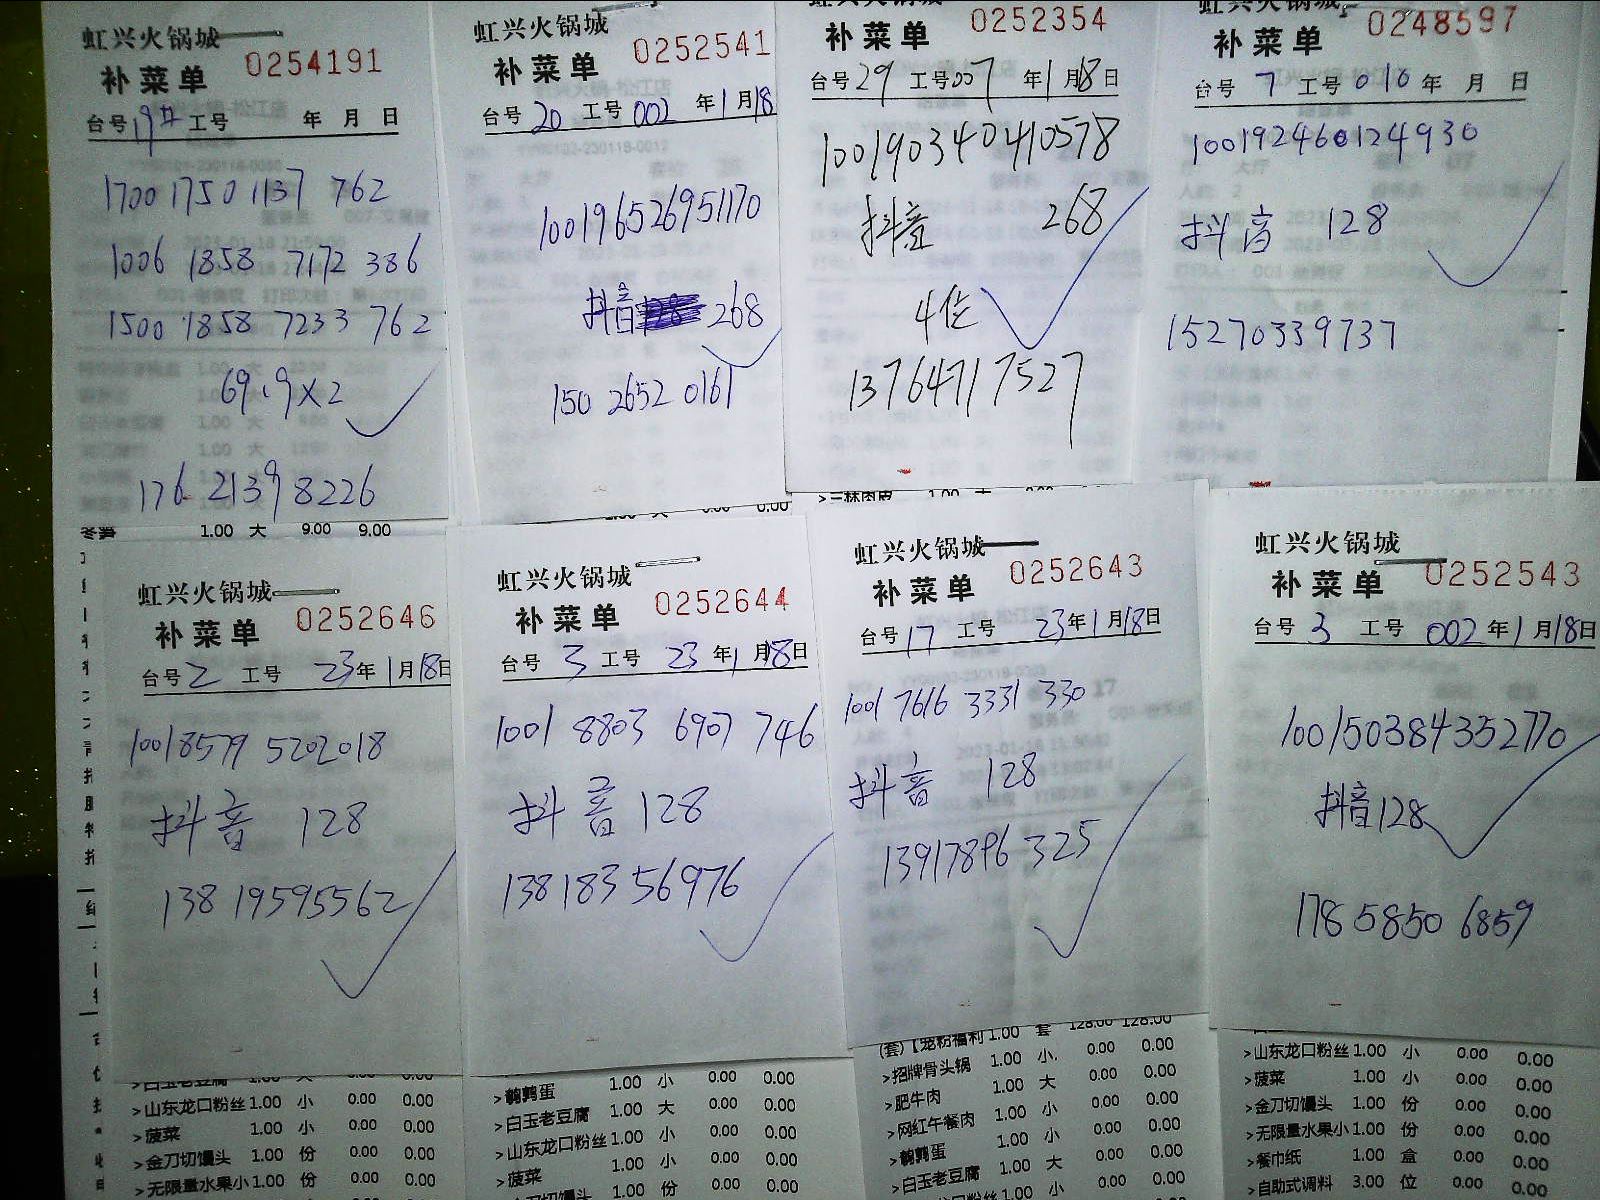 虹兴火锅城
补菜单 0254191
台号 19# 工号 年 月 日
1700 1750 1137 762
1006 1858 7172 386
1500 1858 7233 762
69.9×2
176 2139 8226
虹兴火锅城
补菜单 0252541
台号 20 工号 002 年 1 月 18
100196526951170
抖音 268
150 2652 0161
补菜单 0252354
台号 29 工号 007 年 1 月 18 日
100190340410578
抖音 268
4位
13764717527
虹兴火锅城
补菜单 0248597
台号 7 工号 010 年 月 日
100192460124930
抖音 128
15270339737
1.00 大 9.00 9.00
虹兴火锅城
补菜单 0252646
台号 2 工号 23年 1 月 18日
10018579 5202018
抖音 128
138 19595562
>山东龙口粉丝 1.00 小 0.00 0.00
>菠菜 1.00 小 0.00 0.00
>金刀切馒头 1.00 份 0.00 0.00
>无限量水果小 1.00 份 0.00 0.00
虹兴火锅城
补菜单 0252644
台号 3 工号 23 年 1 月 18日
1001 8803 6907 746
抖音 128
138183 56976
>鹌鹑蛋 1.00 小 0.00 0.00
>白玉老豆腐 1.00 大 0.00 0.00
>山东龙口粉丝 1.00 小 0.00 0.00
>菠菜 1.00 小 0.00 0.00
1.00 份 0.00 0.00
虹兴火锅城
补菜单 0252643
台号 17 工号 23年 1 月 18日
1001 7616 3331 330
抖音 128
13917896 325
(套)【宠粉福利 1.00 套 128.00 128.00
>招牌骨头锅 1.00 小. 0.00 0.00
>肥牛肉 1.00 大 0.00 0.00
>网红午餐肉 1.00 小 0.00 0.00
>鹌鹑蛋 1.00 小 0.00 0.00
>白玉老豆腐 1.00 大 0.00 0.00
虹兴火锅城
补菜单 0252543
台号 3 工号 002 年 1 月 18日
100150384352770
抖音128
178 5850 6859
>山东龙口粉丝 1.00 小 0.00 0.00
>菠菜 1.00 小 0.00 0.00
>金刀切馒头 1.00 份 0.00 0.00
>无限量水果小 1.00 份 0.00 0.00
>餐巾纸 1.00 盒 0.00 0.00
>自助式调料 3.00 位 0.00 0.00